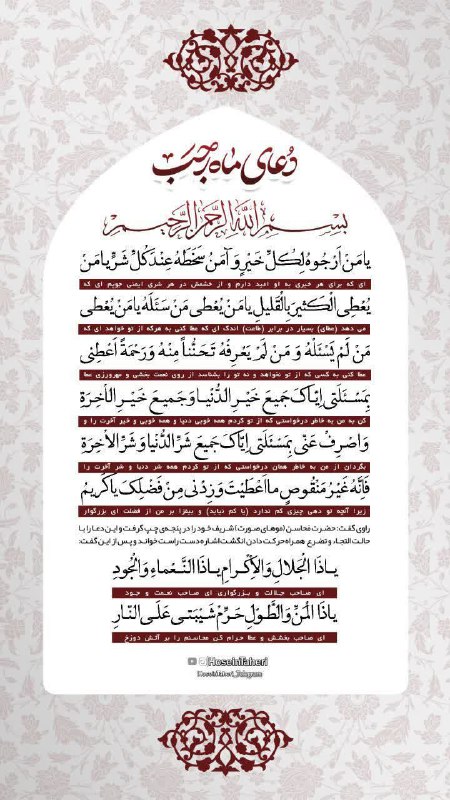 دعای ماه رجب
بسم الله الرحمن الرحیم
یا مَن اَرْجُوهُ لِکُلِّ خَیْرٍ وَ آمَنُ سَخَطَهُ عِنْدَ کُلِّ شَرٍّ یا مَنْ
ای که برای هر خیری به او امید دارم و از خشمش در هر شری ایمنی جویم ای که
یُعْطِی الْکَثیرَ بِالْقَلیلِ یا مَنْ یُعْطی مَنْ سَئَلَهُ یا مَنْ یُعْطی
می دهد (عطای) بسیار در برابر (طاعت) اندک ای که عطا کنی به هرکه از تو خواهد ای که
مَنْ لَمْ یَسْئَلْهُ وَ مَنْ لَمْ یَعْرِفْهُ تَحَنُّناً مِنْهُ وَ رَحْمَةً اَعْطِنی
عطا کنی به کسی که از تو نخواهد و نه تو را بشناسد از روی نعمت بخشی و مهرورزی عطا
بِمَسْئَلَتی اِیّاکَ جَمیعَ خَیْرِ الدُّنْیا وَ جَمیعَ خَیْرِ الْاخِرَةِ
کن به من به خاطر درخواستی که از تو کردم همه خوبی دنیا و همه خوبی و خیر آخرت را و
وَ اصْرِفْ عَنّی بِمَسْئَلَتی اِیّاکَ جَمیعَ شَرِّ الدُّنْیا وَ شَرِّ الْاخِرَةِ
بگردان از من به خاطر همان درخواستی که از تو کردم همه شر دنیا و شر آخرت را
فَاِنَّهُ غَیْرُ مَنْقُوصٍ ما اَعْطَیْتَ وَ زِدْنی مِنْ فَضْلِکَ یا کَریمُ
زیرا آنچه تو دهی چیزی کم ندارد (یا کم نیاید) و بیفزا بر من از فضلت ای بزرگوار
راوی گفت: حضرت محاسن (موهای صورت) شریف خود را در پنجه‌ی چپ گرفت و این دعا را با
حالت التجاء و تضرع همراه حرکت دادن انگشت اشاره دست راست خواند و پس از این گفت:
یا ذَا الْجَلالِ وَالْاِکْرامِ یا ذَا النَّعْماءِ وَالْجُودِ
ای صاحب جلالت و بزرگواری ای صاحب نعمت و جود
یا ذَا الْمَنِّ وَالطَّوْلِ حَرِّمْ شَیْبَتی عَلَی النّارِ
ای صاحب بخشش و عطا حرام کن محاسنم را بر آتش دوزخ
HoseinTaheri
HoseinTaheri_Telegram